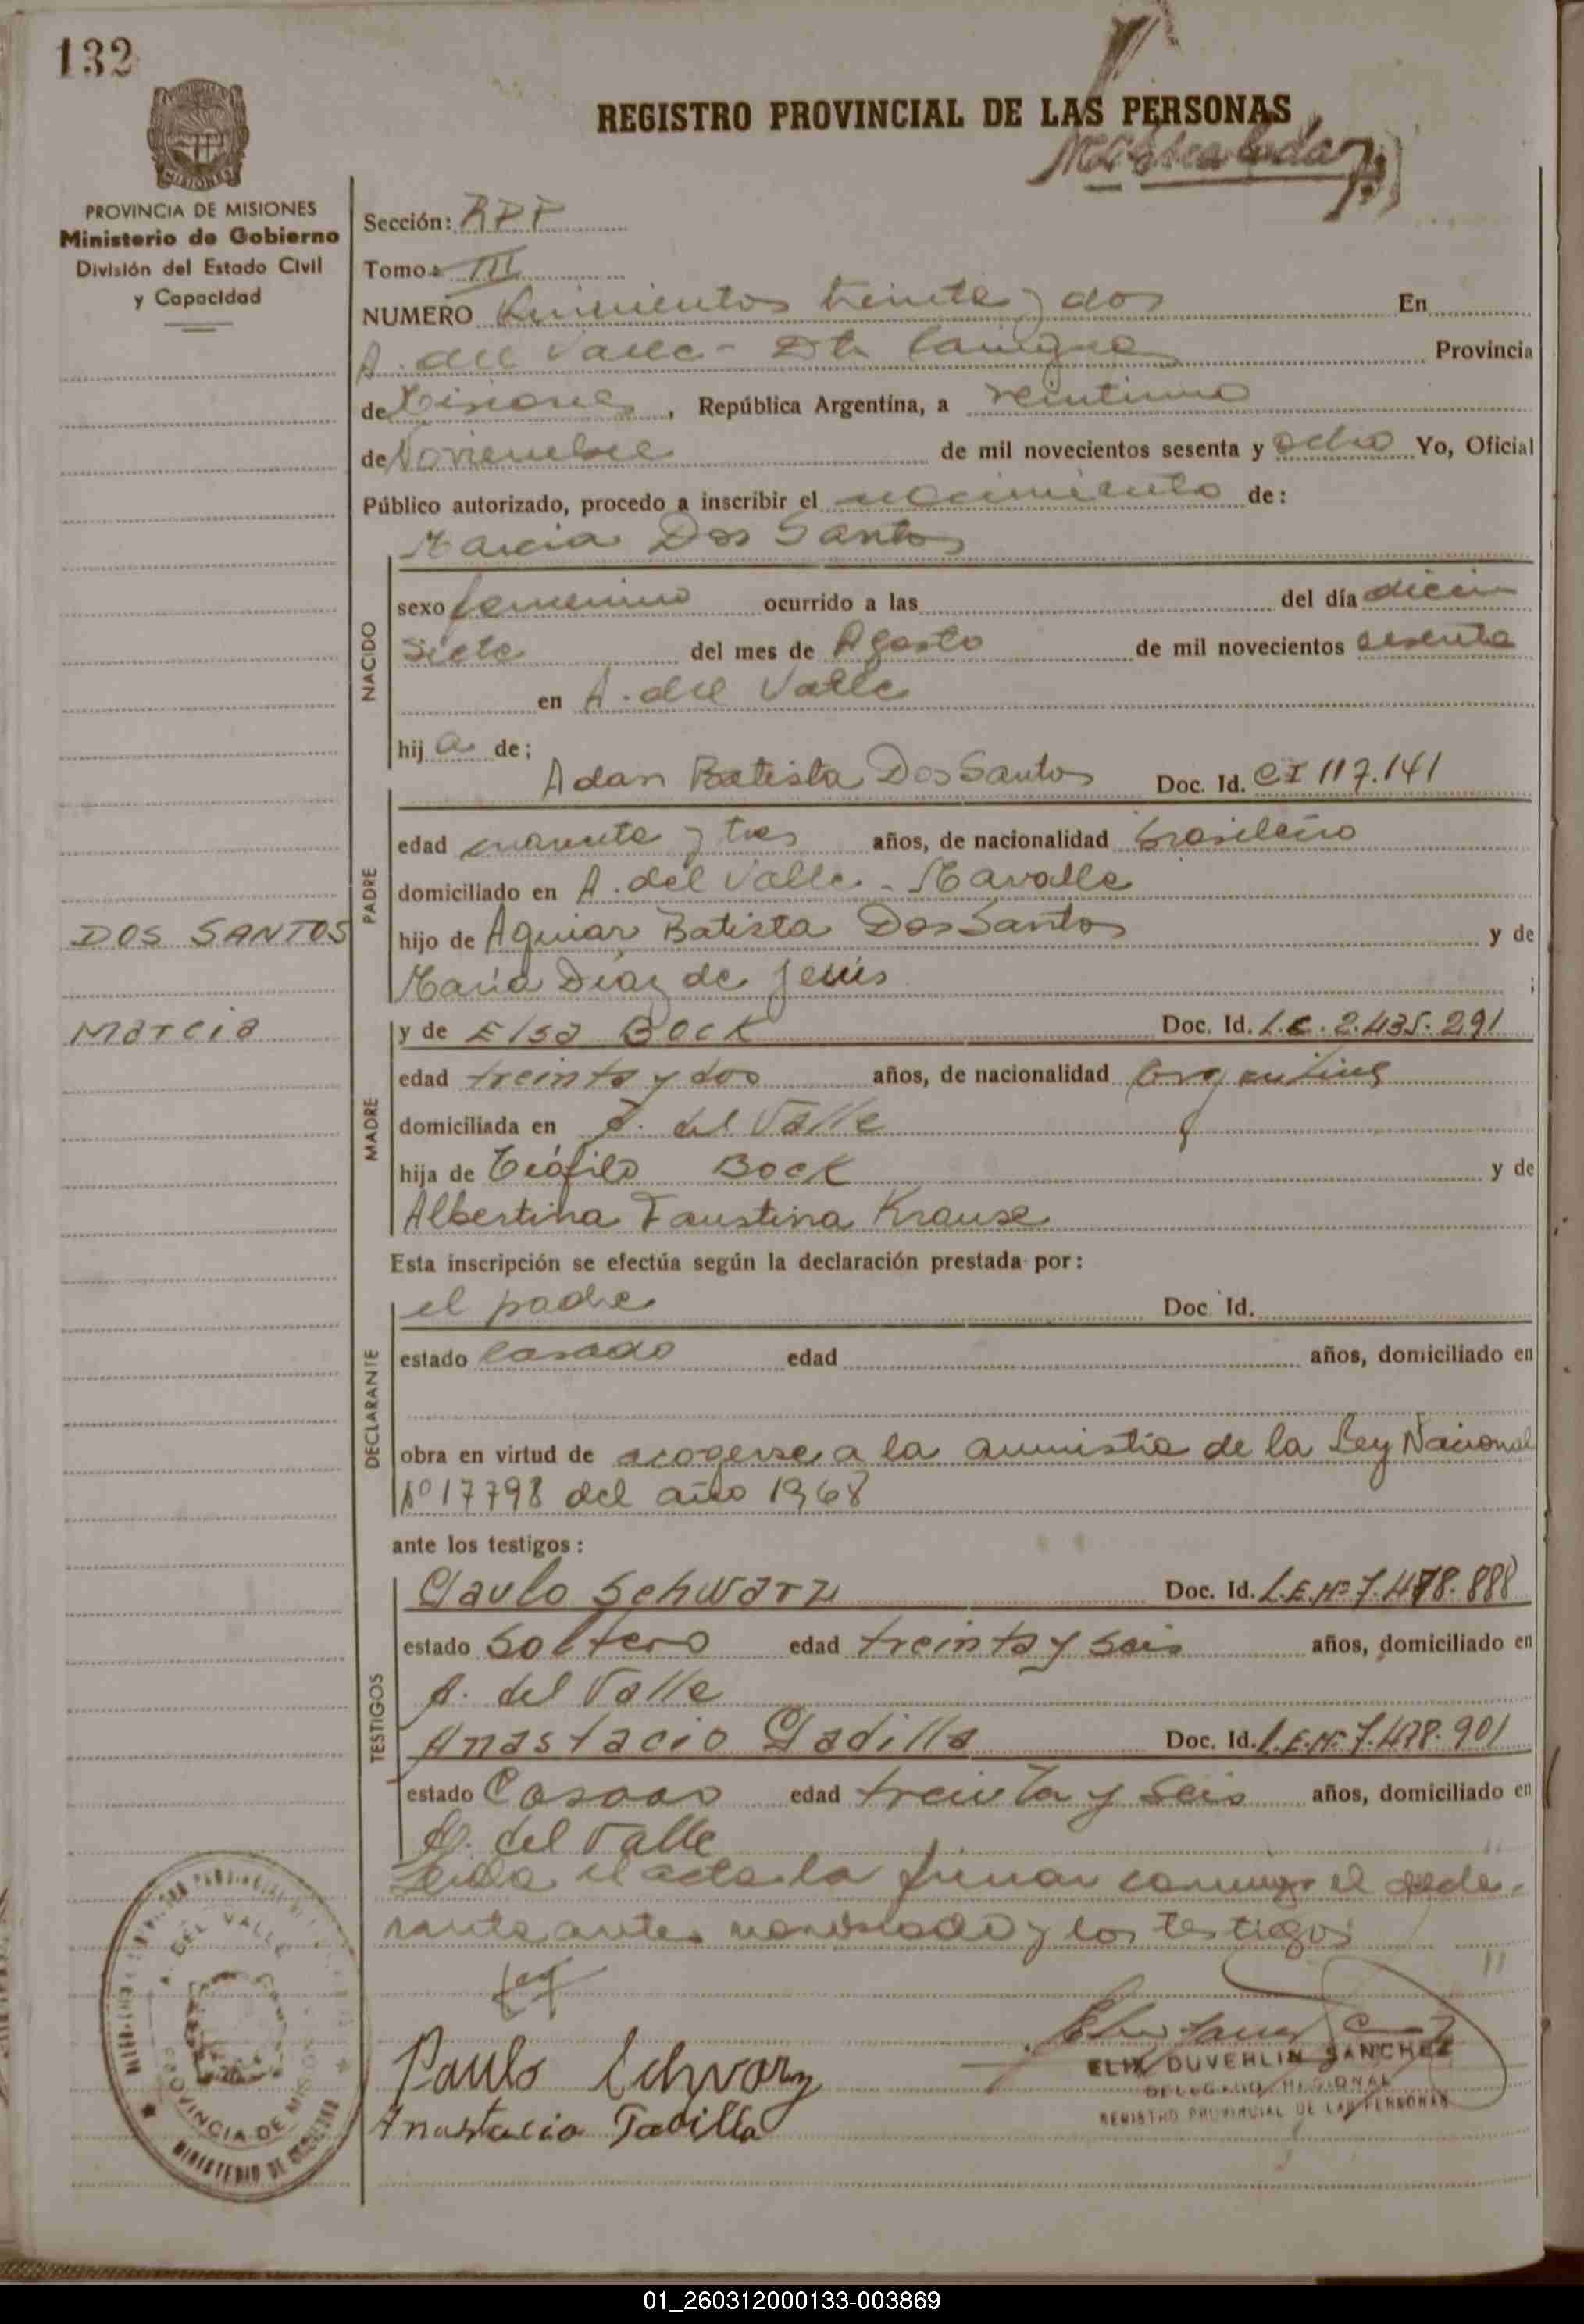 132
REGISTRO PROVINCIAL DE LAS PERSONAS
MISIONES
PROVINCIA DE MISIONES
Ministerio de Gobierno
División del Estado Civil
y Capacidad
Sección: RPP
Tomo: III
NUMERO Kinientos treinta y dos En
A. del Valle - Dto Cainguas Provincia
de Misiones, República Argentina, a veintiuno
de Noviembre de mil novecientos sesenta y ocho Yo, Oficial
Público autorizado, procedo a inscribir el nacimiento de:
Marcia Dos Santos
NACIDO
sexo femenino ocurrido a las del día dieci
siete del mes de Agosto de mil novecientos sesenta
en A. del Valle
hija de:
PADRE
Adan Batista Dos Santos Doc. Id. CI 117.141
edad cuarenta y tres años, de nacionalidad brasileño
domiciliado en A. del Valle - Mavalle
hijo de Aguiar Batista Dos Santos y de
María Díaz de Jesús ;
DOS SANTOS
Marcia
MADRE
y de Elsa Bock Doc. Id. L.C. 2.435.291
edad treinta y dos años, de nacionalidad argentina
domiciliada en A. del Valle
hija de Teófilo Bock y de
Albertina Faustina Krause
Esta inscripción se efectúa según la declaración prestada por:
DECLARANTE
el padre Doc. Id.
estado casado edad años, domiciliado en
obra en virtud de acogerse a la amnistia de la Ley Nacional
Nº 17798 del año 1968
ante los testigos:
TESTIGOS
Paulo Schwarz Doc. Id. L.E. Nº 7.478.888
estado soltero edad treinta y seis años, domiciliado en
A. del Valle
Anastacio Padilla Doc. Id. L.E. Nº 7.478.901
estado Casado edad treinta y seis años, domiciliado en
A. del Valle
Leida el acta la firman conmigo el decla-
rante antes nombrado y los testigos
Paulo Schvarz
Anastacio Padilla
DUVERLIN SANCHEZ
DELEGADO REGIONAL
REGISTRO PROVINCIAL DE LAS PERSONAS
A. DEL VALLE
PROVINCIA DE MISIONES
MINISTERIO DE GOBIERNO
01_260312000133-003869